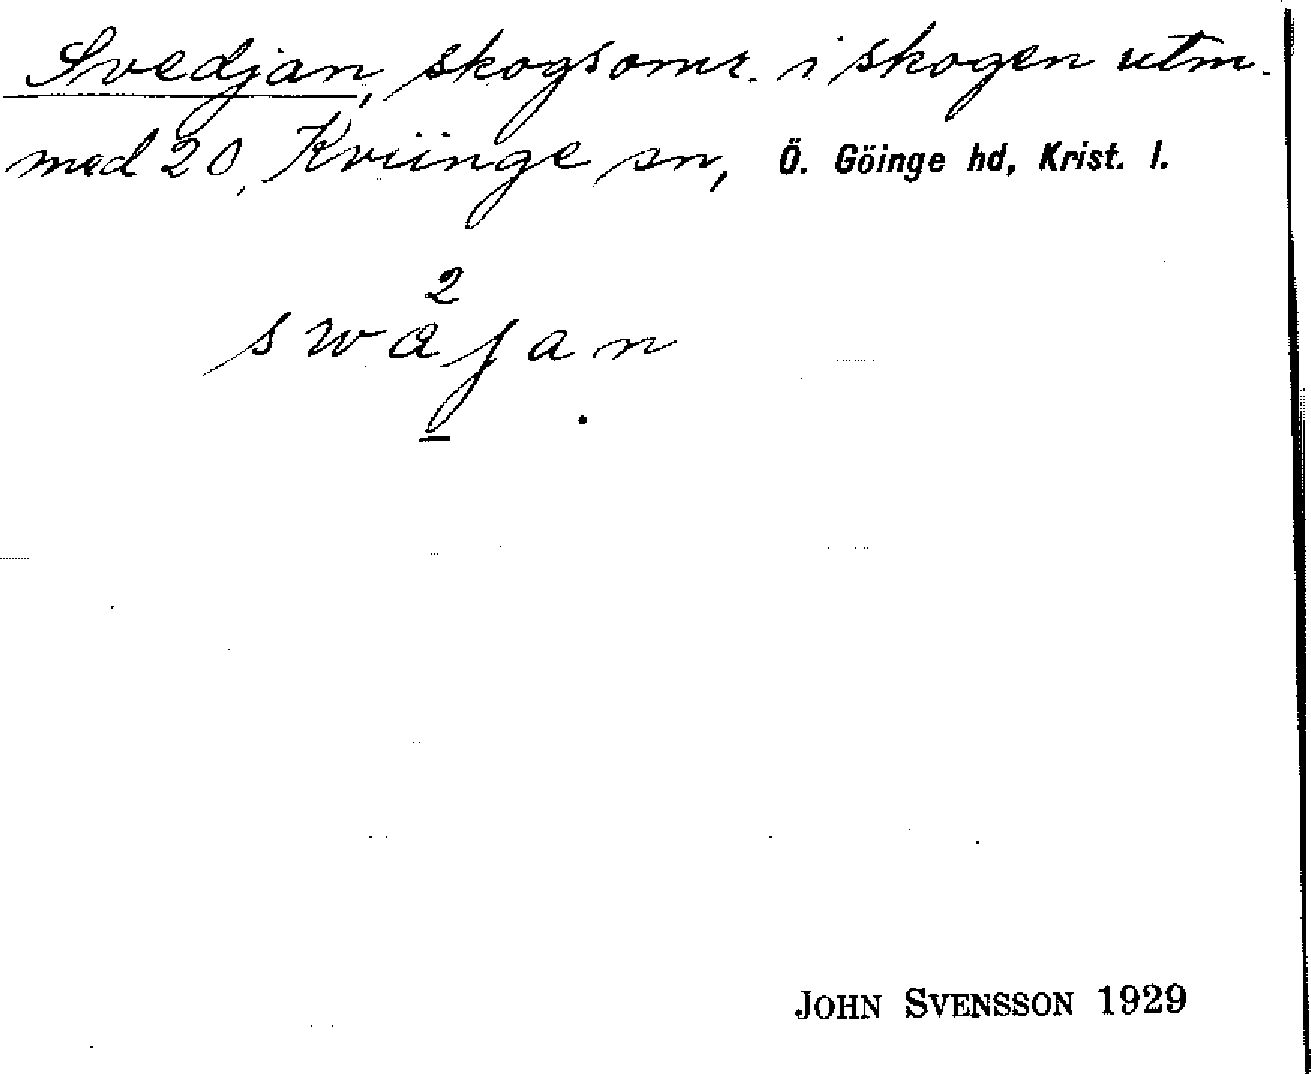 Svedjan, skogsomr. i skogen utm.
med 20, Kviinge sn, Ö. Göinge hd, Krist. l.
2
swajan
JOHN SVENSSON 1929